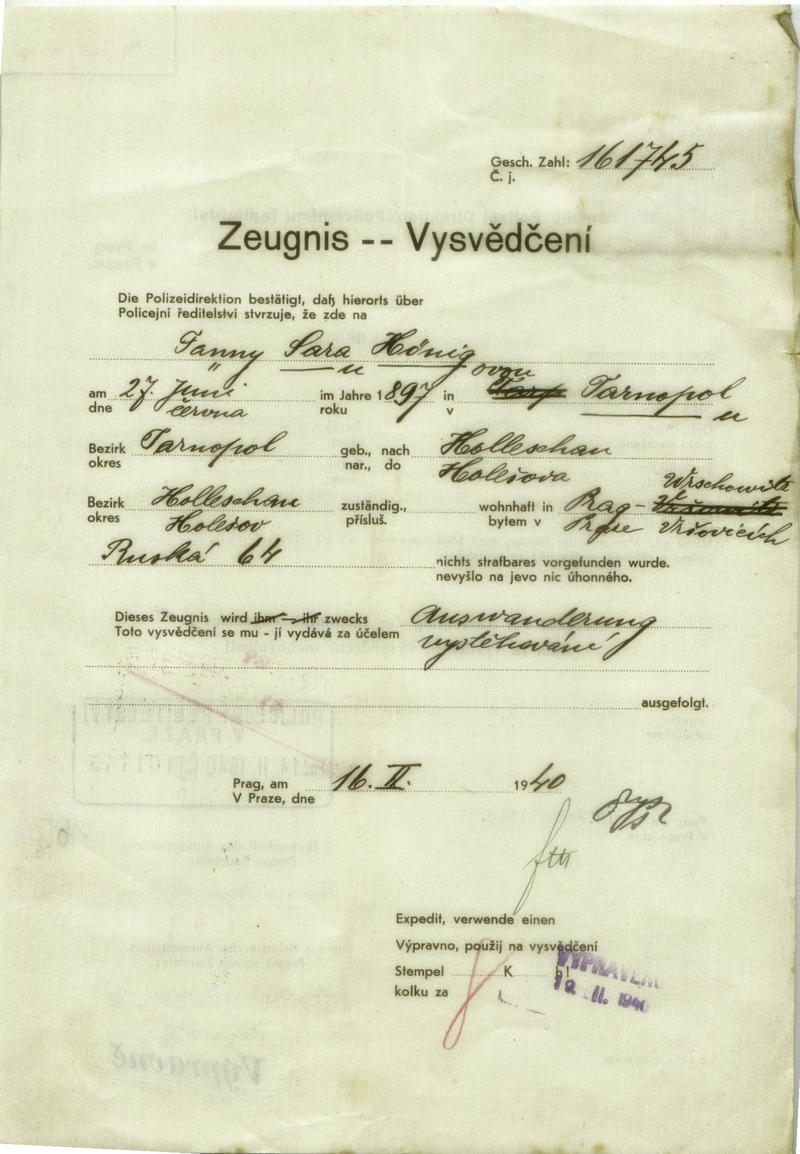 Gesch. Zahl: 161745
Č. j.
Zeugnis -- Vysvědčení
Die Polizeidirektion bestätigt, daß hierorts über
Policejní ředitelství stvrzuje, že zde na
Fanny Sara Hönig
ovou
am 27. Juni im Jahre 1897 in Tarnopol
dne června roku v u
Bezirk Tarnopol geb., nach Holleschau
okres nar., do Holešova
Bezirk Holleschau zuständig., wohnhaft in Prag - Wrschowitz
okres Holešov přísluš. bytem v Praze Vršovicích
Ruská 64 nichts strafbares vorgefunden wurde.
nevyšlo na jevo nic úhonného.
Dieses Zeugnis wird ihm - ihr zwecks Auswanderung
Toto vysvědčení se mu - jí vydává za účelem vystěhování
ausgefolgt.
Prag, am 16. II. 1940
V Praze, dne
Expedit, verwende einen
Výpravno, použij na vysvědčení
Stempel K h!
kolku za
VYPRAVENO
19. II. 1940